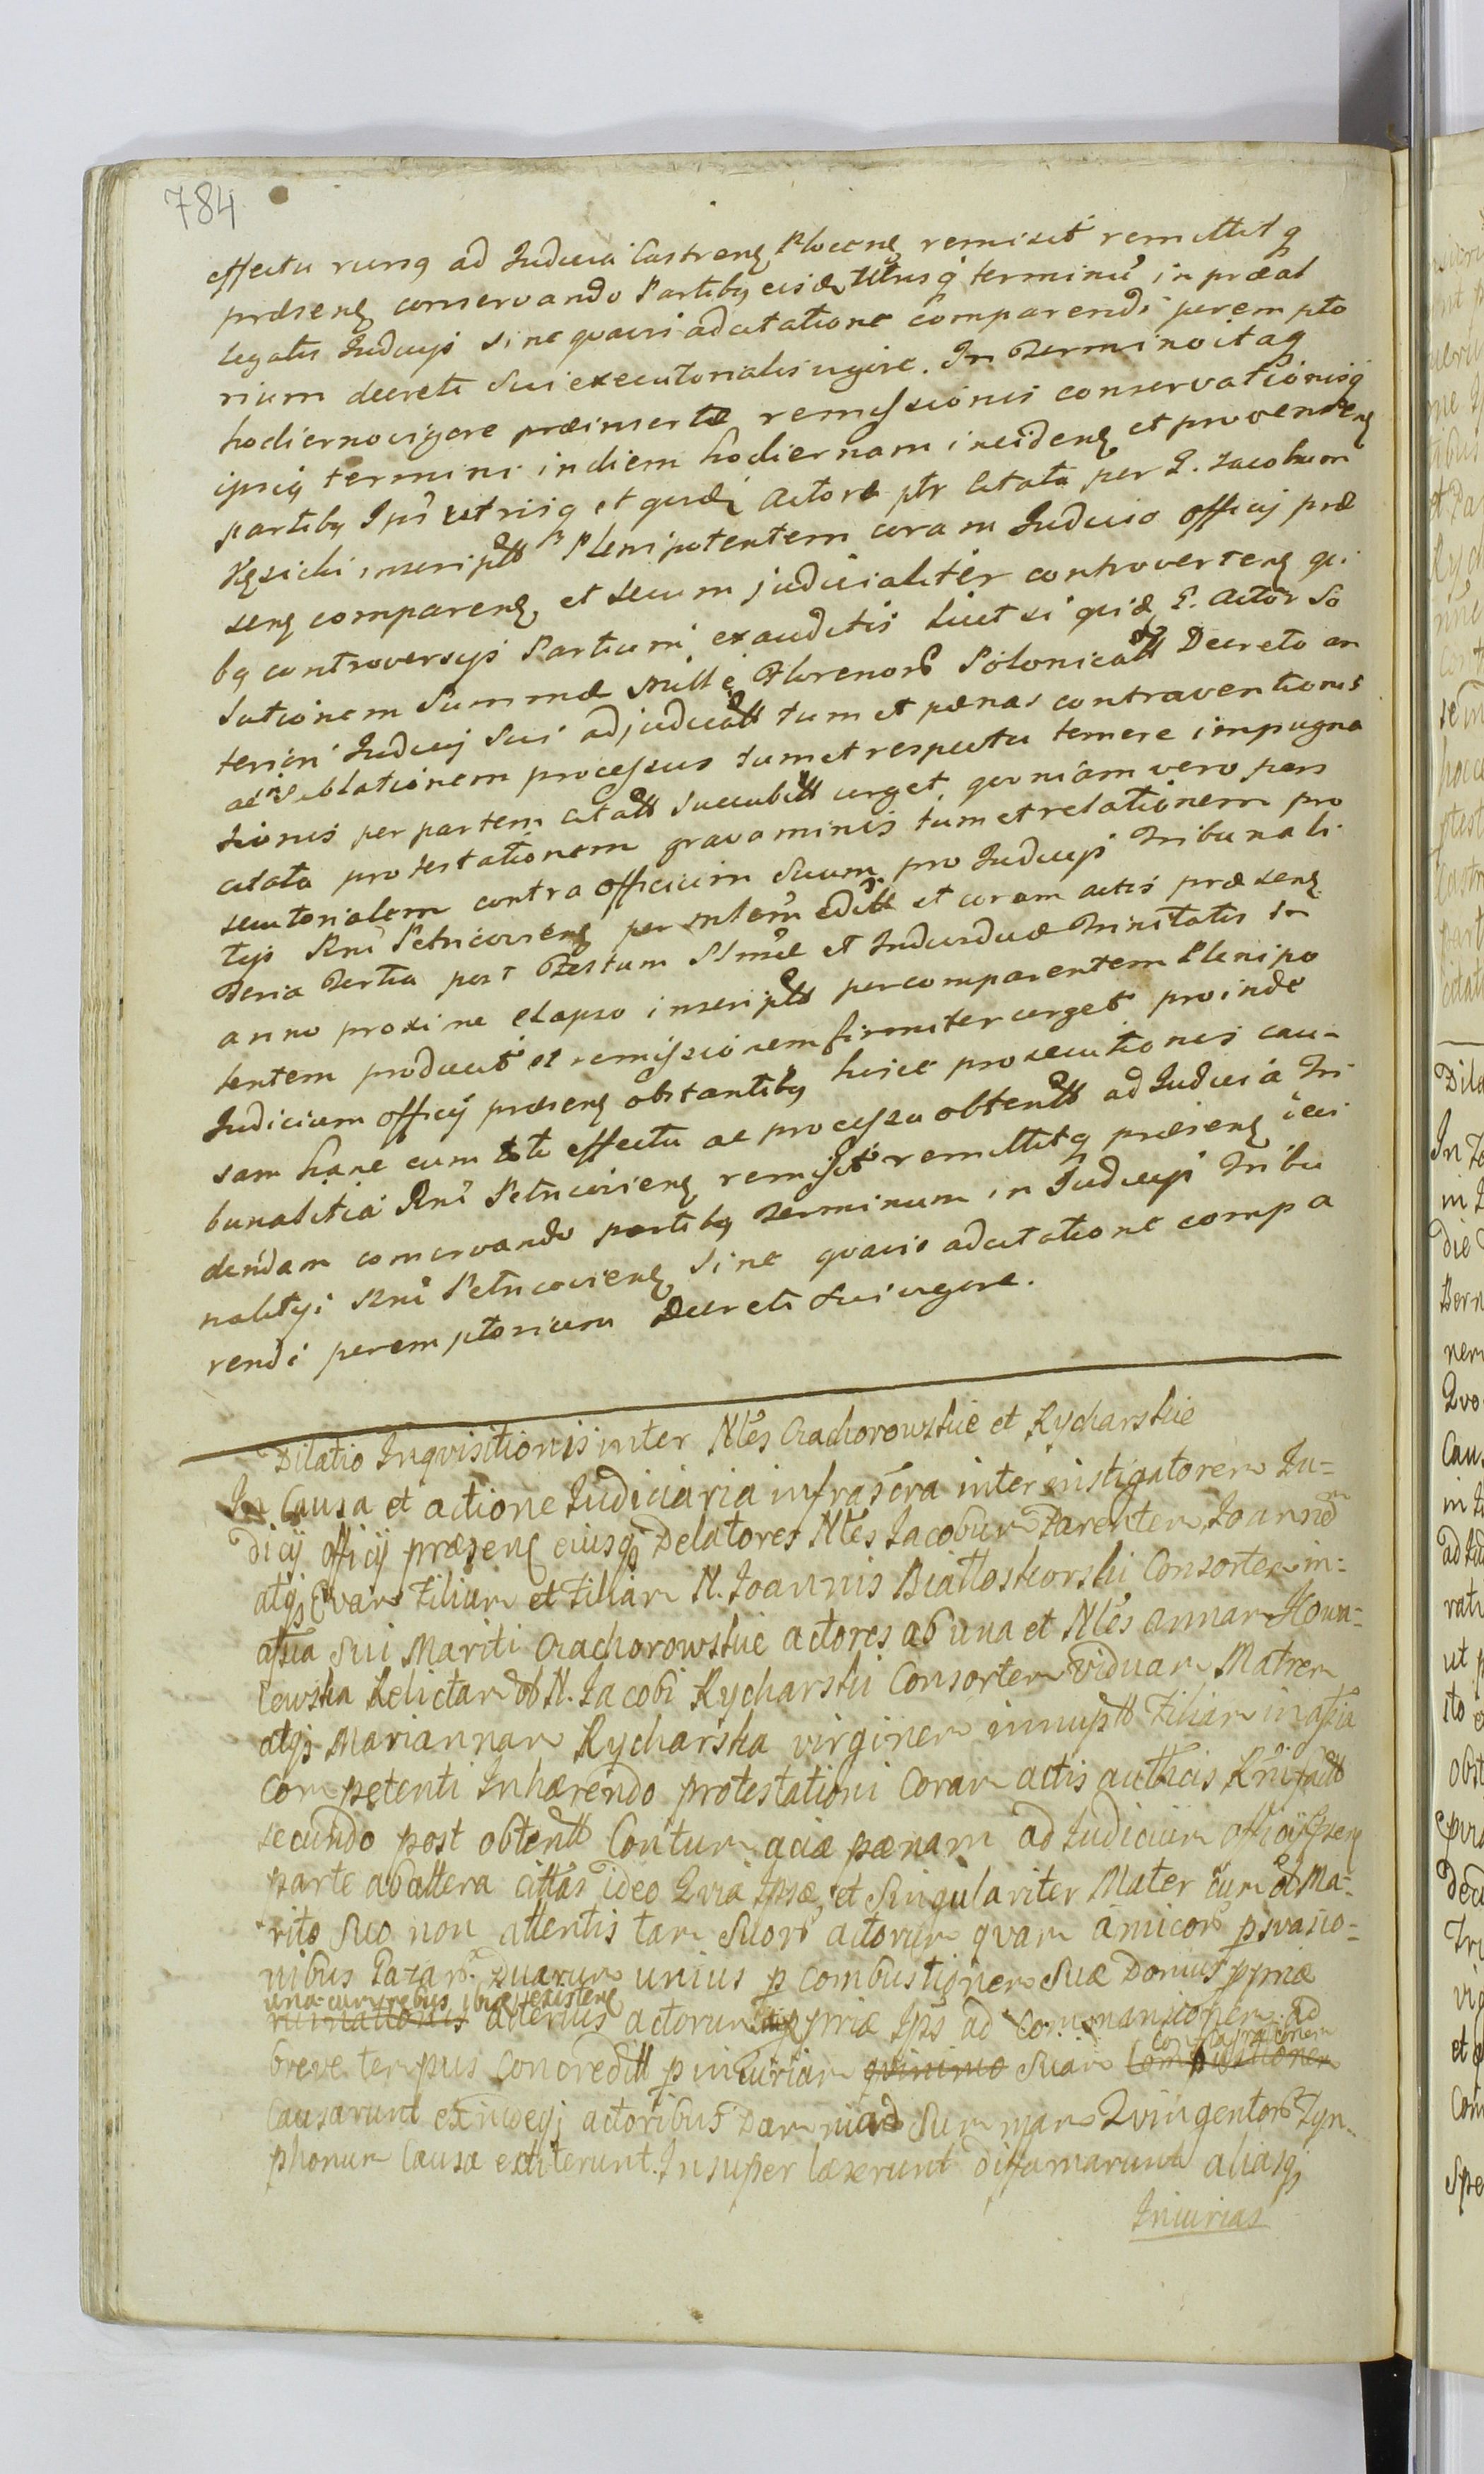 784
effectu rursq ad Judicia Castrenş Plocenş remisit remittitq
præsenş conservando Partibq eisdē Utrisq terminū in præal
legatis Judicijs sine quavis adcitatione comparendi perempto
rium decreti sui executorialis vigore. In Termino itaq
hodierno vigore præinsertæ remissionis conservationisq
ipsiq termini in diem hodiernam incidenş et provenienş
partibq Ipsī utrisq et quidē Actore ptr Citata per G. Jacobum
Kęsicki inscriptt Plenipotentem coram Judicio officij præ
senş comparenş et secum judicialiter controvertenş qi
bq controversijs Partium exauditis licet si quidē G. Actor So
lutionem Summæ Mille Florenorū Polonicatt Decreto an
teriori Judicij Sui adjudicatt tum et pænas contraventionis
ac Sublationem processus tum et respectu temere impugna
tionis per partem citatt succubitt urget, quoniam vero pars
citata protestationem gravaminis tum et relationem pro
secutorialem contra officium Suum pro Judicijs Tribunali
tijs Rnī Petricoviensş per Mlem editt et coram actis præsenş
Feria Tertia post Festum SSmæ et Individuæ Trinitatis in
anno proxime elapso inscriptt per comparentem Plenipo
tentem producit et remissionem firmiter urget proinde
Judicium officij præsenş obstantibq huice prosecutionis cau-
sam hanc cum toto effectu ac processu obtentt ad Judicia Tri
bunalitia Rnī Petricoviensş remisit remittitq præsenş deci
dendam conservando partibq Terminum in Judicijs Tribu
nalitijs Rnī Petricoviensş sine quavis adcitatione compa
rendi peremptorium Decreti sui vigore.
Dilatio Inqvisitionis inter Nles Ciachorowskie et Rycharskie
In Causa et actione Judiciaria infrascra inter instigatorem Ju=
dicij officij præsenş eiusqȝ Delatores Nles Jacobum Parentem Joannem
atqȝ Evam Filium et Filiam N. Joannis Białłoskorski Consortem in=
assia sui Mariti Ciachorowskie actores ab una et Nles annam Kowa=
lewska Relictam ol N. Jacobi Rycharski Consortem viduam Matrem
atqȝ Mariannam Rycharska virginem innuptt Filiam in assia
competenti Inhærendo protestationi Coram actis authcis Rnī factt
secundo post obtentt Contumaciæ pænam ad Judicium officij præsenş
parte ab altera cittas ideo Qvia Ipsæ et Singulariter Mater cum ol Ma=
rito suo non attentis tam Suorū actorum qvam amicorū psvasio=
nibus Pazarū Duarum unius p combustionem suæ Domus ppriæ
una cum rebus ibidē existenş
ruinationis alterius actorum ppriæ Ips ad commansionem ad
breve tempus Concreditt p incuriam qvinimo suam Conflagrationem
Combustionem
Causarunt exindeqȝ actoribus Damni ad Summam Qvingentorū Tyn-
phonum Causa extiterunt. Insuper læserunt diffamarunt aliasqȝ
Iniurias